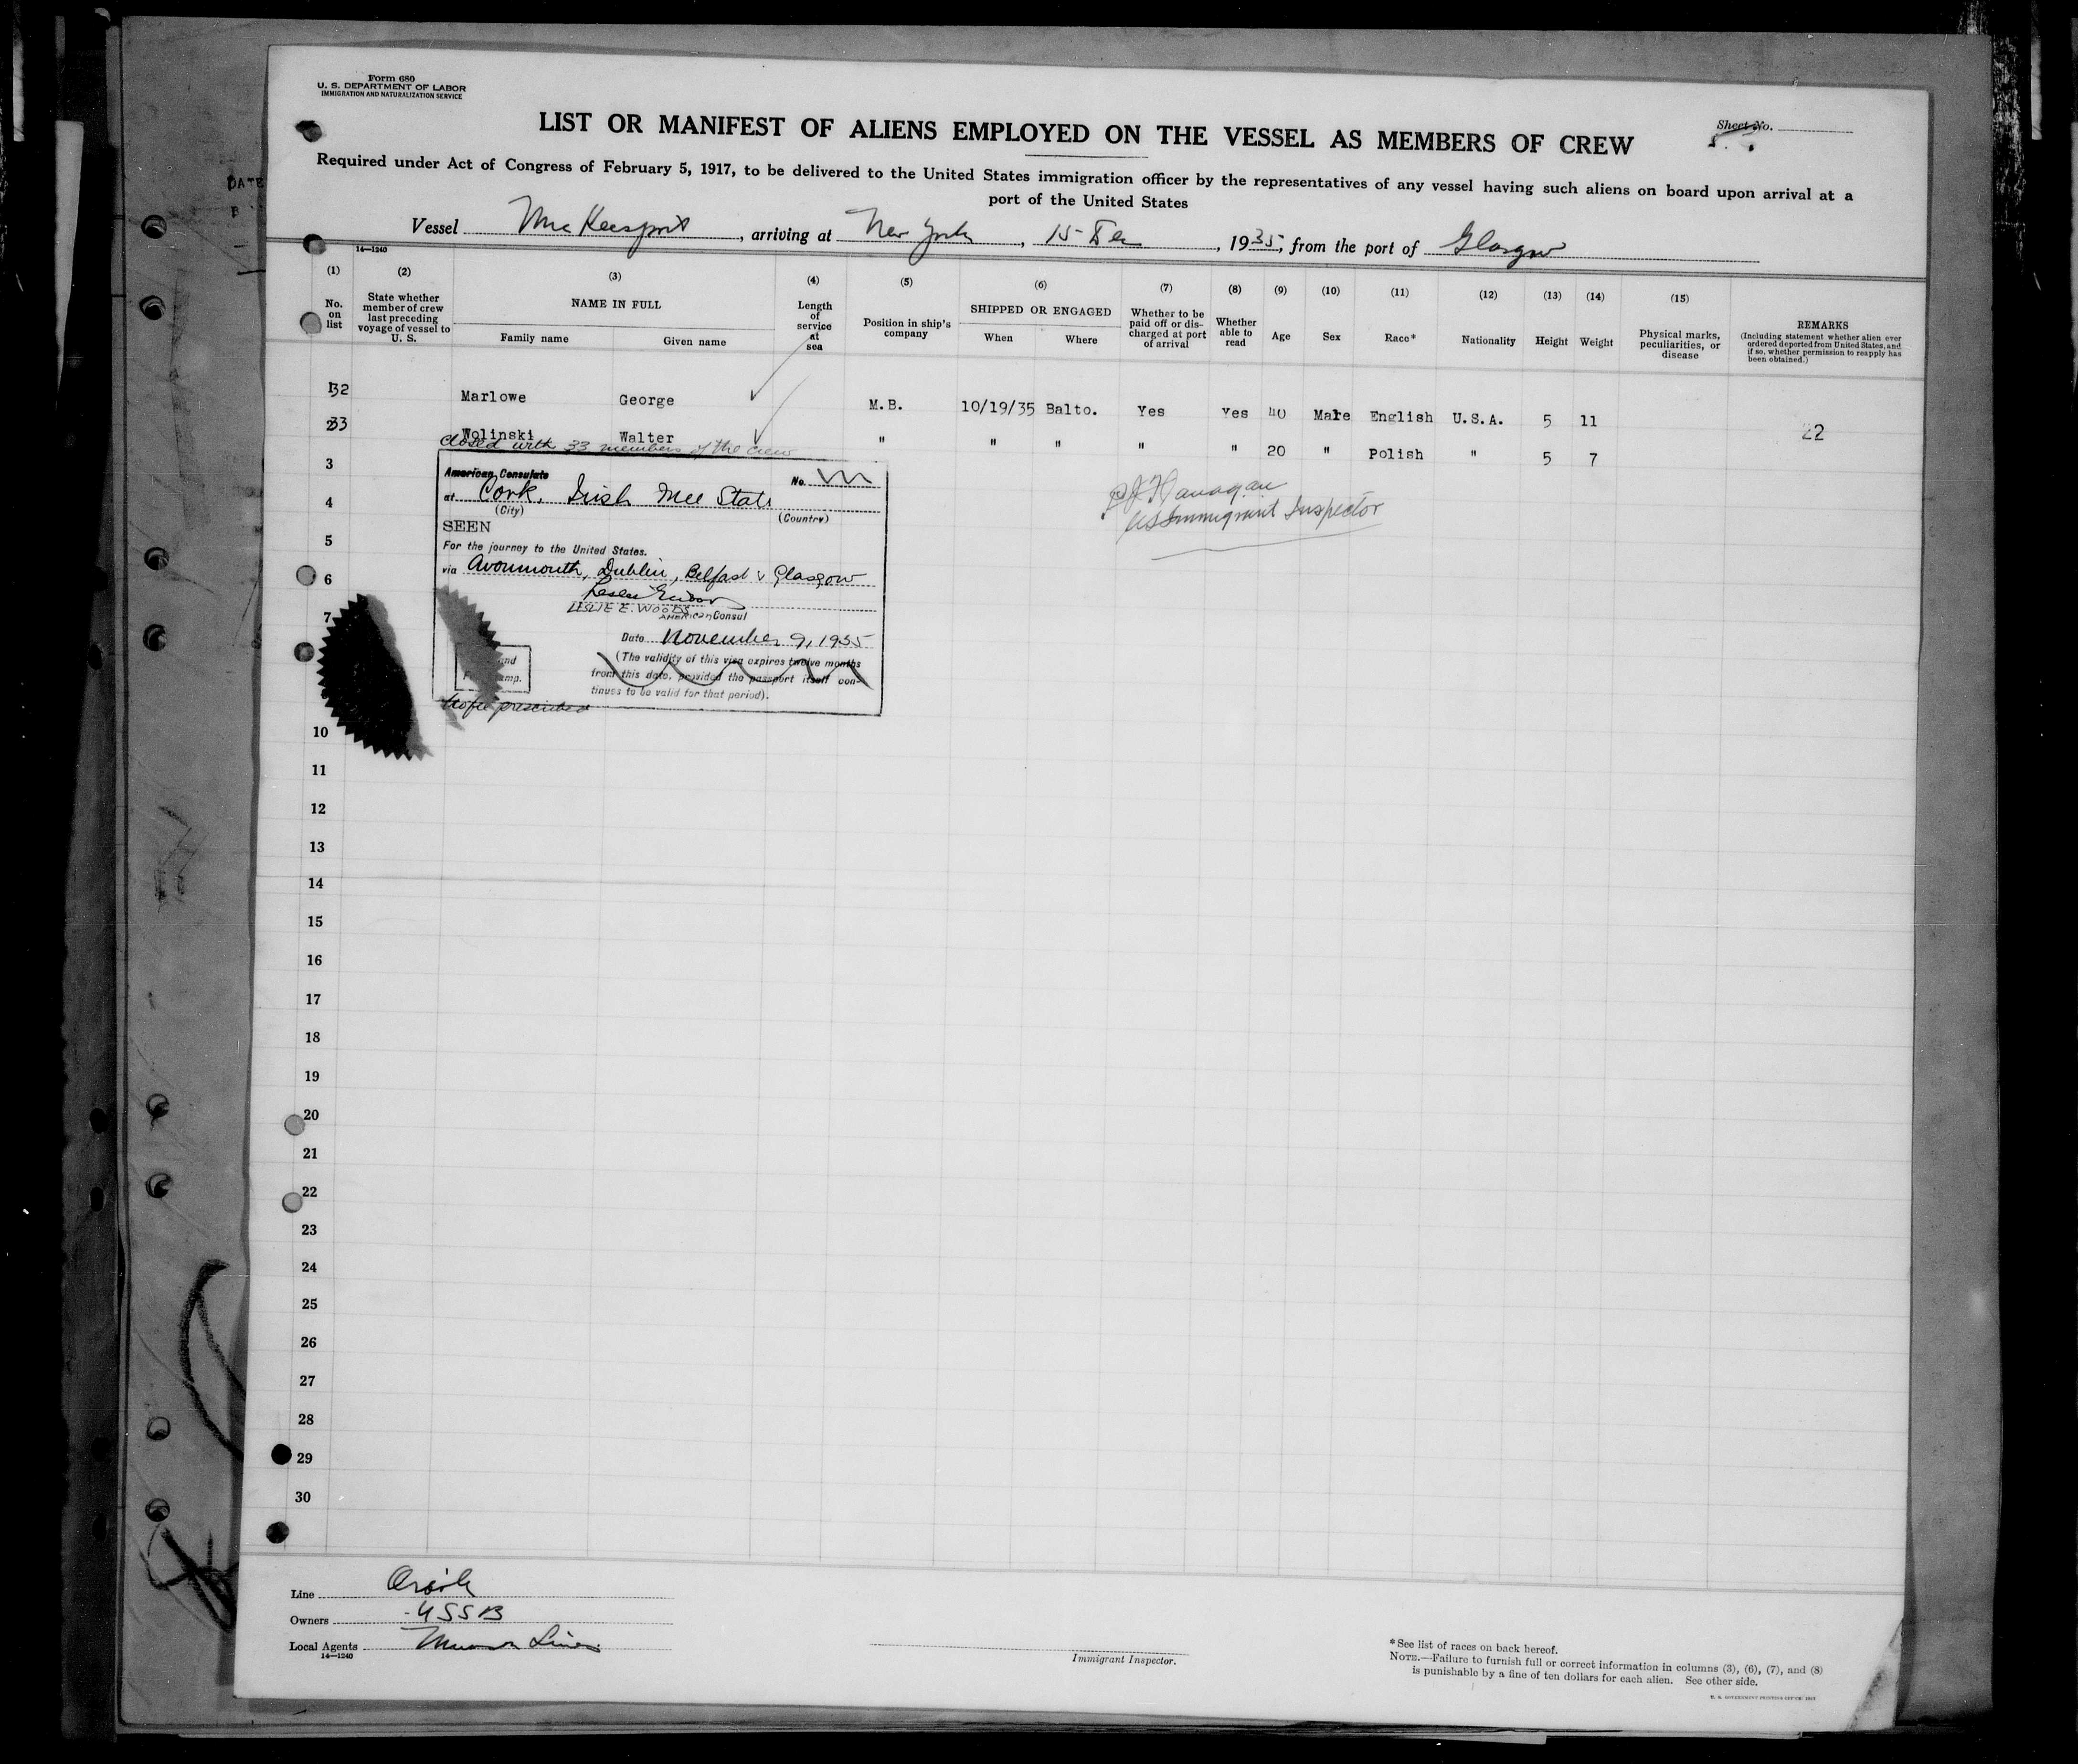 Form 680
U. S. DEPARTMENT OF LABOR
IMMIGRATION AND NATURALIZATION SERVICE
LIST OR MANIFEST OF ALIENS EMPLOYED ON THE VESSEL AS MEMBERS OF CREW
Sheet No.
Required under Act of Congress of February 5, 1917, to be delivered to the United States immigration officer by the representatives of any vessel having such aliens on board upon arrival at a
port of the United States
Vessel McKeesport, arriving at New York, 15, 1935, from the port of Glasgow
14—1240
(1) (2) (3) (4) (5) (6) (7) (8) (9) (10) (11) (12) (13) (14) (15)
No. on list
State whether member of crew last preceding voyage of vessel to U. S.
NAME IN FULL
Family name Given name
Length of service at sea
Position in ship's company
SHIPPED OR ENGAGED
When Where
Whether to be paid off or discharged at port of arrival
Whether able to read
Age
Sex
Race*
Nationality
Height
Weight
Physical marks, peculiarities, or disease
REMARKS
(Including statement whether alien ever ordered deported from United States, and if so, whether permission to reapply has been obtained.)
32 Marlowe George M.B. 10/19/35 Balto. Yes Yes 40 Male English U.S.A. 5 11
33 Wolinski Walter " " " " " 20 " Polish " 5 7
22
closed with 33 members of the crew
3
American Consulate No.
at Cork, Irish Free State
(City) (Country)
4
SEEN
5
For the journey to the United States.
via Avonmouth, Dublin, Belfast & Glasgow
6
LESLIE E. WOODS
AMERICAN Consul
7
Date November 9, 1935
(The validity of this visa expires twelve months
from this date, provided the passport itself con-
tinues to be valid for that period).
No fee prescribed
US Immigrant Inspector
10
11
12
13
14
15
16
17
18
19
20
21
22
23
24
25
26
27
28
29
30
Line Oriole
Owners USSB
Local Agents Munson Line
14—1240
Immigrant Inspector.
*See list of races on back hereof.
NOTE.—Failure to furnish full or correct information in columns (3), (6), (7), and (8)
is punishable by a fine of ten dollars for each alien. See other side.